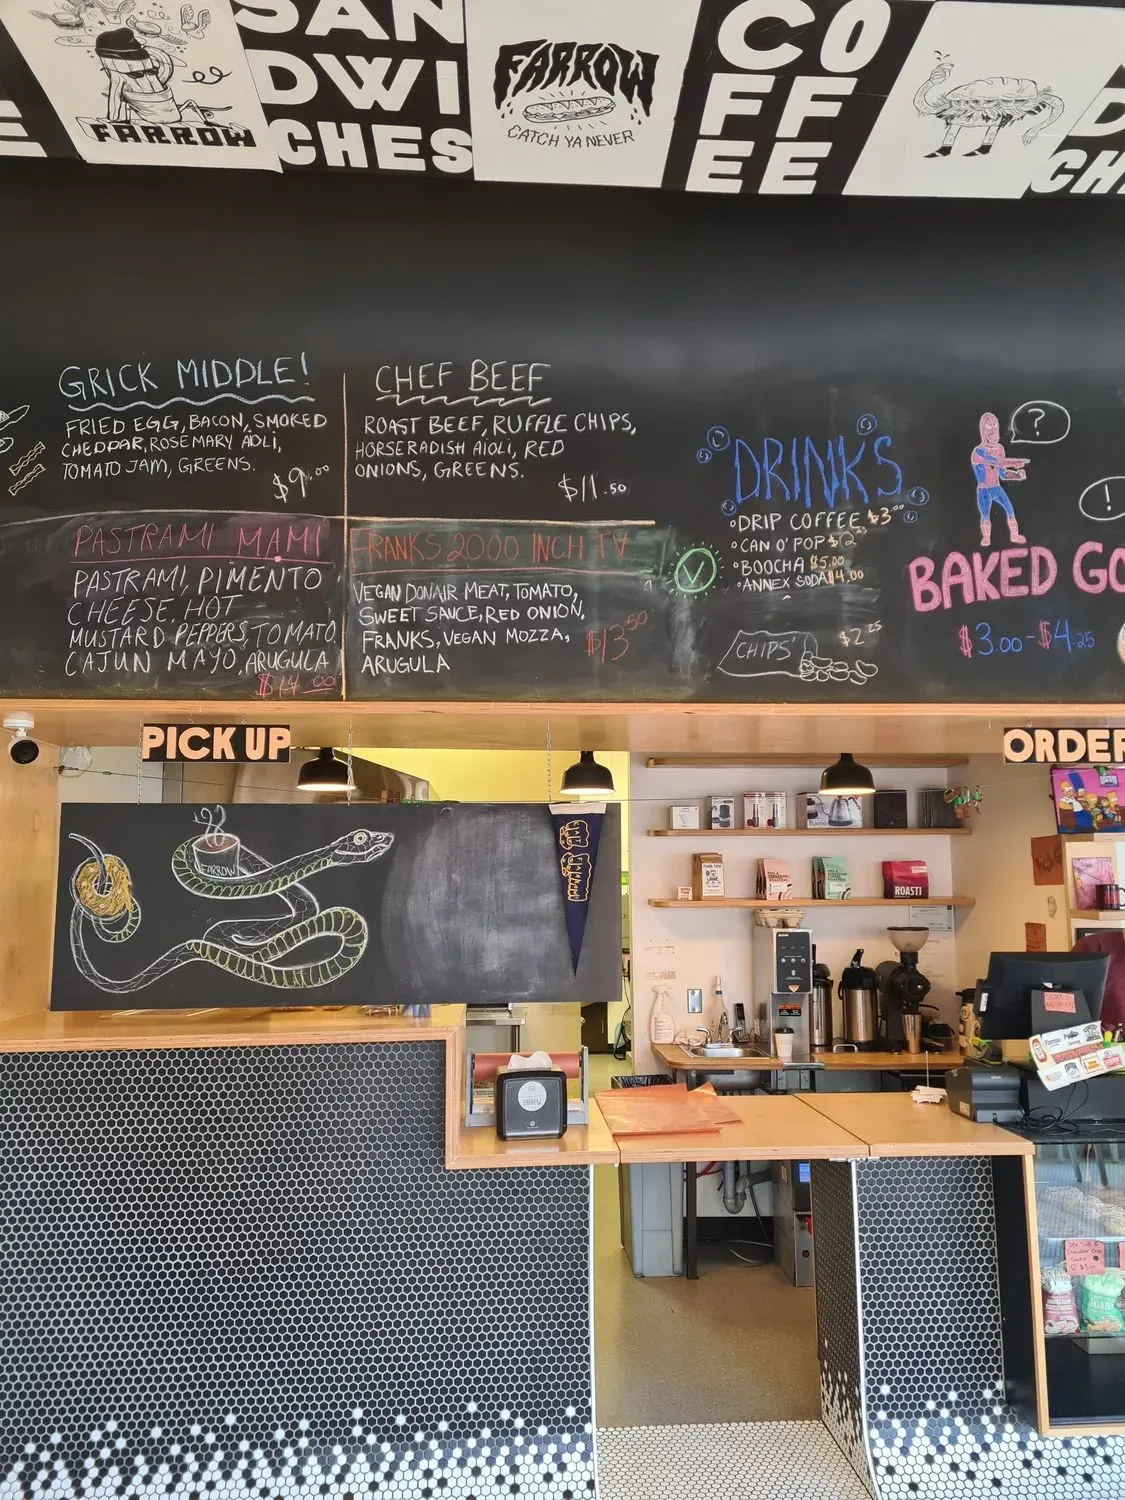 SAN
DWI
CHES
FARROW
FARROW
CATCH YA NEVER
CO
FF
EE
GRICK MIDDLE!
FRIED EGG, BACON, SMOKED
CHEDDAR, ROSEMARY AIOLI,
TOMATO JAM, GREENS.
$9.00
CHEF BEEF
ROAST BEEF, RUFFLE CHIPS,
HORSERADISH AIOLI, RED
ONIONS, GREENS.
$11.50
PASTRAMI MAMI
PASTRAMI, PIMENTO
CHEESE, HOT
MUSTARD PEPPERS, TOMATO,
CAJUN MAYO, ARUGULA
$14.00
FRANKS 2000 INCH TV
VEGAN DONAIR MEAT, TOMATO,
SWEET SAUCE, RED ONION,
FRANKS, VEGAN MOZZA,
ARUGULA
$13.50
V
DRINKS
DRIP COFFEE $3.00
CAN O' POP
BOOCHA $5.00
ANNEX SODA $4.00
CHIPS
$2.25
?
!
BAKED GO
$3.00-$4.25
PICK UP
ORDER
FARROW
ROASTI
FARROW